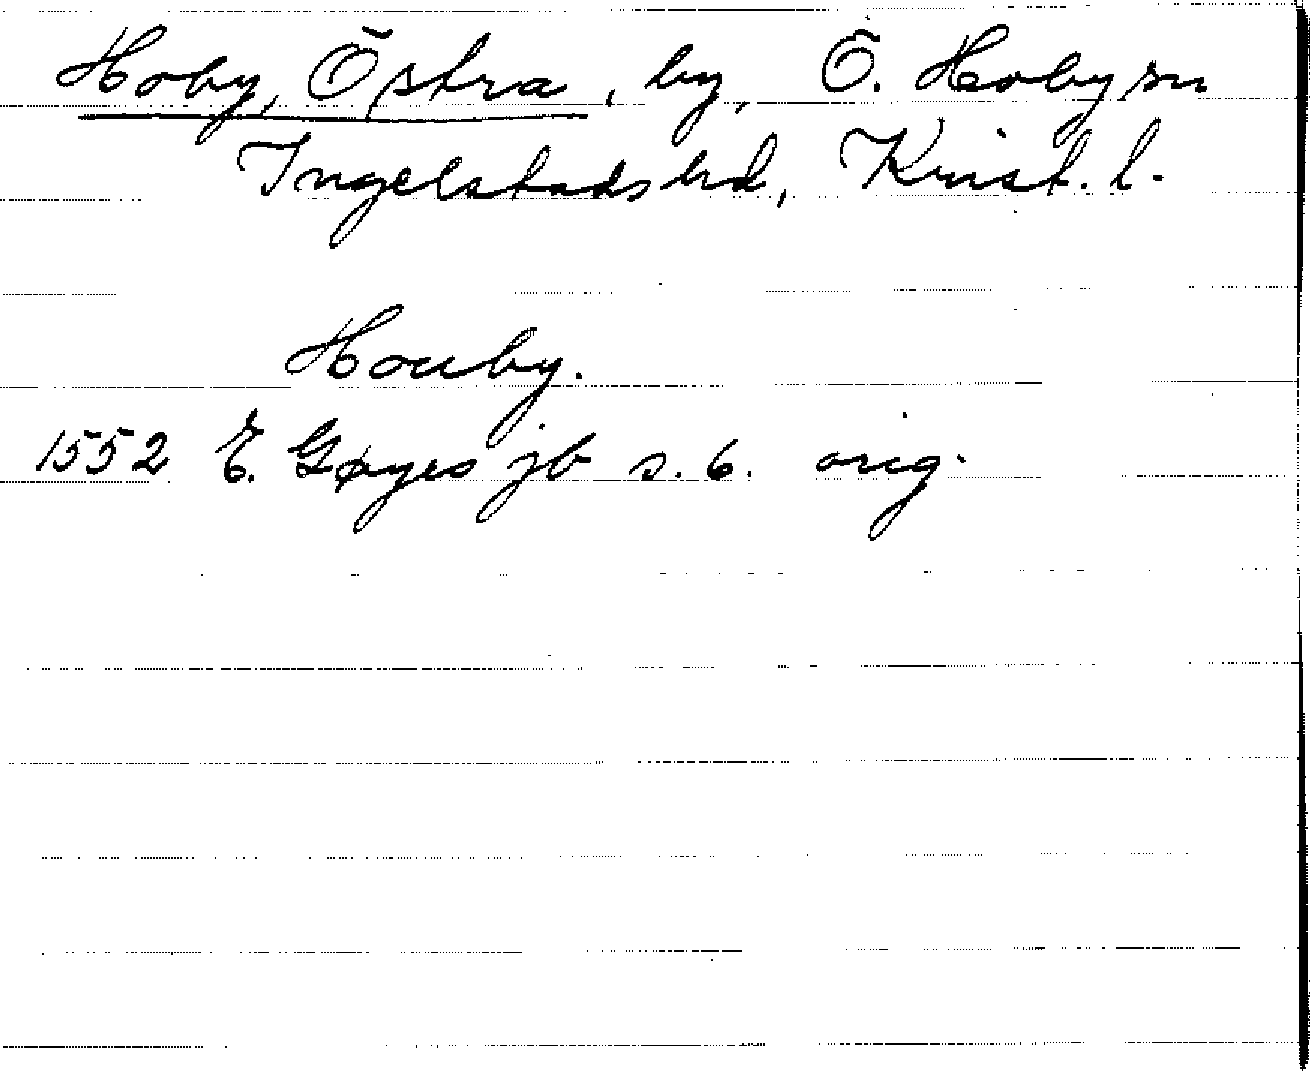 Hoby, Östra, by, Ö. Hoby sn
Ingelstads hd, Krist. l.
Houby.
1552 E. Gøyes jb s. 6. orig.